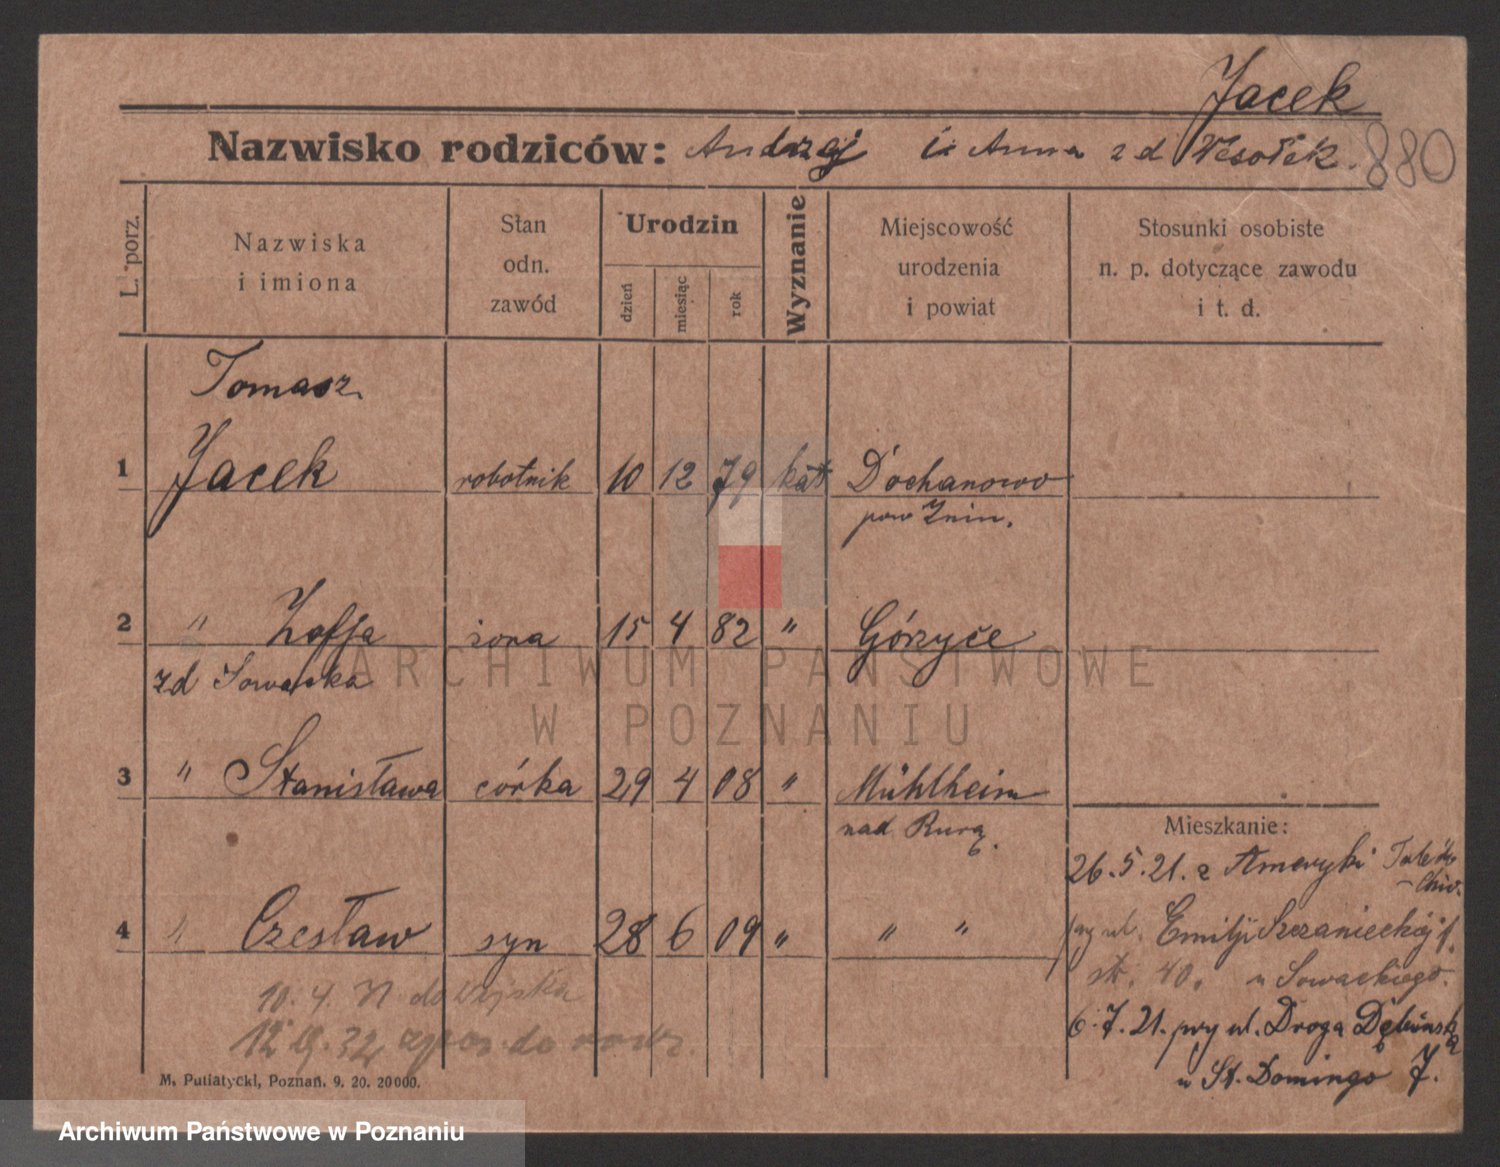 Jacek
Nazwisko rodziców: Andrzej i Anna z d Wesołek.
880
L. porz.
Nazwiska
i imiona
Stan
odn.
zawód
Urodzin
dzień
miesiąc
rok
Wyznanie
Miejscowość
urodzenia
i powiat
Stosunki osobiste
n. p. dotyczące zawodu
i t. d.
Tomasz
1 Jacek robotnik 10 12 79 kat Dochanowo
pow Żnin.
2 " Zofja żona 15 4 82 " Górzyce
z d Sowacka
ARCHIWUM PAŃSTWOWE
W POZNANIU
3 " Stanisława córka 29 4 08 " Mühlheim
nad Rurą.
Mieszkanie:
26.5.21. z Ameryki
4 " Czesław syn 28 6 09 " " "
przy ul. Emilji Szczanieckiej 1.
10. 4. 31 do wojska
st. 40. u Sowackiego.
6.7.21. przy ul. Droga Dębińska
12 9. 32 do
u St. Domingo 7.
M. Putiatycki, Poznań. 9. 20. 20000.
Archiwum Państwowe w Poznaniu